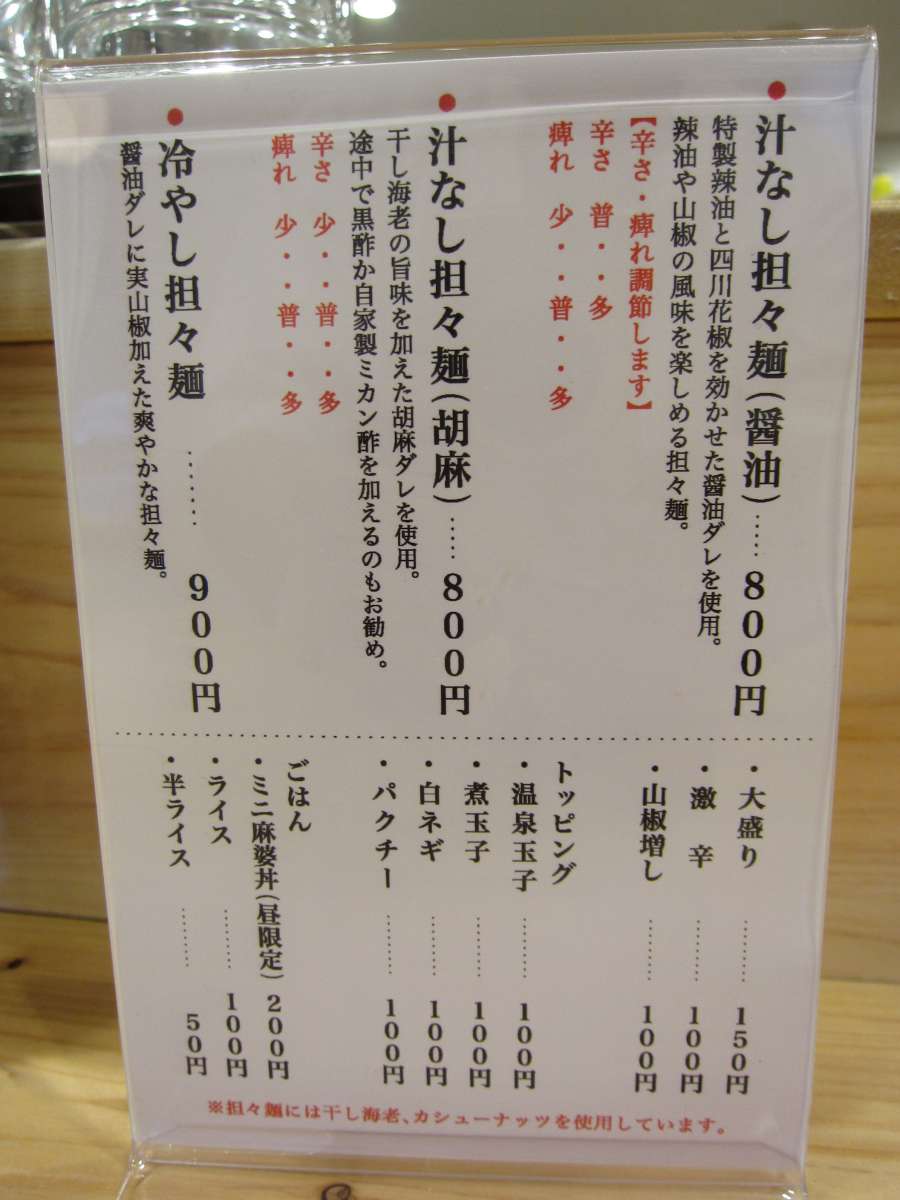 ●汁なし担々麺(醤油)‥‥‥800円
特製辣油と四川花椒を効かせた醤油ダレを使用。
辣油や山椒の風味を楽しめる担々麺。
【辛さ・痺れ調節します】
辛さ 普・・多
痺れ 少・・普・・多
●汁なし担々麺(胡麻)‥‥‥800円
干し海老の旨味を加えた胡麻ダレを使用。
途中で黒酢か自家製ミカン酢を加えるのもお勧め。
辛さ 少・・普・・多
痺れ 少・・普・・多
●冷やし担々麺‥‥‥900円
醤油ダレに実山椒加えた爽やかな担々麺。
・大盛り‥‥‥‥150円
・激 辛‥‥‥‥100円
・山椒増し‥‥‥‥100円
トッピング
・温泉玉子‥‥‥‥100円
・煮玉子‥‥‥‥100円
・白ネギ‥‥‥‥100円
・パクチー‥‥‥‥100円
ごはん
・ミニ麻婆丼(昼限定)200円
・ライス‥‥‥‥100円
・半ライス‥‥‥‥50円
※担々麺には干し海老、カシューナッツを使用しています。